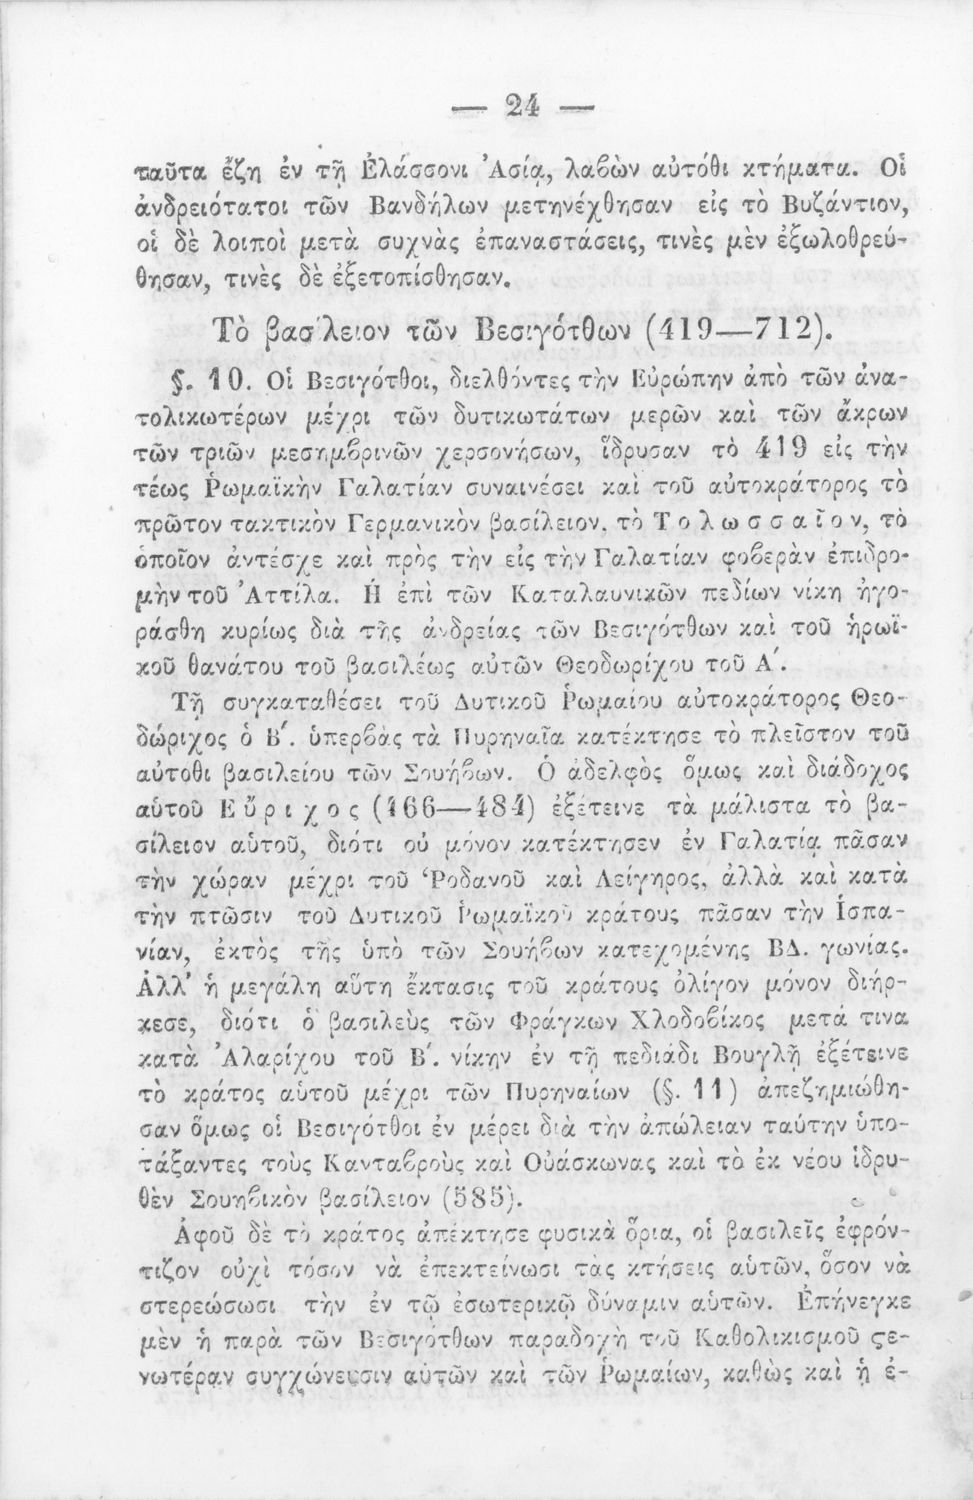 — 24 —
ταῦτα ἔζη ἐν τῇ Ἐλάσσονι Ἀσίᾳ, λαβὼν αὐτόθι κτήματα. Οἱ
ἀνδρειότατοι τῶν Βανδήλων μετηνέχθησαν εἰς τὸ Βυζάντιον,
οἱ δὲ λοιποὶ μετὰ συχνὰς ἐπαναστάσεις, τινὲς μὲν ἐξωλοθρεύ-
θησαν, τινὲς δὲ ἐξετοπίσθησαν.
Τὸ βασίλειον τῶν Βεσιγότθων (419—712).
§. 10. Οἱ Βεσιγότθοι, διελθόντες τὴν Εὐρώπην ἀπὸ τῶν ἀνα-
τολικωτέρων μέχρι τῶν δυτικωτάτων μερῶν καὶ τῶν ἄκρων
τῶν τριῶν μεσημβρινῶν χερσονήσων, ἵδρυσαν τὸ 419 εἰς τὴν
τέως Ῥωμαϊκὴν Γαλατίαν συναινέσει καὶ τοῦ αὐτοκράτορος τὸ
πρῶτον τακτικὸν Γερμανικὸν βασίλειον, τὸ Τολωσσαῖον, τὸ
ὁποῖον ἀντέσχε καὶ πρὸς τὴν εἰς τὴν Γαλατίαν φοβερὰν ἐπιδρο-
μὴν τοῦ Ἀττίλα. Ἡ ἐπὶ τῶν Καταλαυνικῶν πεδίων νίκη ἠγο-
ράσθη κυρίως διὰ τῆς ἀνδρείας τῶν Βεσιγότθων καὶ τοῦ ἡρωϊ-
κοῦ θανάτου τοῦ βασιλέως αὐτῶν Θεοδωρίχου τοῦ Α΄.
Τῇ συγκαταθέσει τοῦ Δυτικοῦ Ῥωμαίου αὐτοκράτορος Θεο-
δώριχος ὁ Β΄. ὑπερβὰς τὰ Πυρηναῖα κατέκτησε τὸ πλεῖστον τοῦ
αὐτοθι βασιλείου τῶν Σουήβων. Ὁ ἀδελφὸς ὅμως καὶ διάδοχος
αὑτοῦ Εὔριχος (466—484) ἐξέτεινε τὰ μάλιστα τὸ βα-
σίλειον αὑτοῦ, διότι οὐ μόνον κατέκτησεν ἐν Γαλατίᾳ πᾶσαν
τὴν χώραν μέχρι τοῦ Ῥοδανοῦ καὶ Λείγηρος, ἀλλὰ καὶ κατὰ
τὴν πτῶσιν τοῦ Δυτικοῦ Ῥωμαϊκοῦ κράτους πᾶσαν τὴν Ἱσπα-
νίαν, ἐκτὸς τῆς ὑπὸ τῶν Σουήβων κατεχομένης ΒΔ. γωνίας.
Ἀλλ' ἡ μεγάλη αὕτη ἔκτασις τοῦ κράτους ὀλίγον μόνον διήρ-
κεσε, διότι ὁ βασιλεὺς τῶν Φράγκων Χλοδοβίκος μετά τινα
κατὰ Ἀλαρίχου τοῦ Β΄. νίκην ἐν τῇ πεδιάδι Βουγλῇ ἐξέτεινε
τὸ κράτος αὑτοῦ μέχρι τῶν Πυρηναίων (§. 11) ἀπεζημιώθη-
σαν ὅμως οἱ Βεσιγότθοι ἐν μέρει διὰ τὴν ἀπώλειαν ταύτην ὑπο-
τάξαντες τοὺς Κανταβροὺς καὶ Οὐάσκωνας καὶ τὸ ἐκ νέου ἱδρυ-
θὲν Σουηβικὸν βασίλειον (585).
Ἀφοῦ δὲ τὸ κράτος ἀπέκτησε φυσικὰ ὅρια, οἱ βασιλεῖς ἐφρόν-
τιζον οὐχὶ τόσον νὰ ἐπεκτείνωσι τὰς κτήσεις αὑτῶν, ὅσον νὰ
στερεώσωσι τὴν ἐν τῷ ἐσωτερικῷ δύναμιν αὑτῶν. Ἐπήνεγκε
μὲν ἡ παρὰ τῶν Βεσιγότθων παραδοχὴ τοῦ Καθολικισμοῦ ϛε-
νωτέραν συγχώνευσιν αὐτῶν καὶ τῶν Ῥωμαίων, καθὼς καὶ ἡ ἐ-